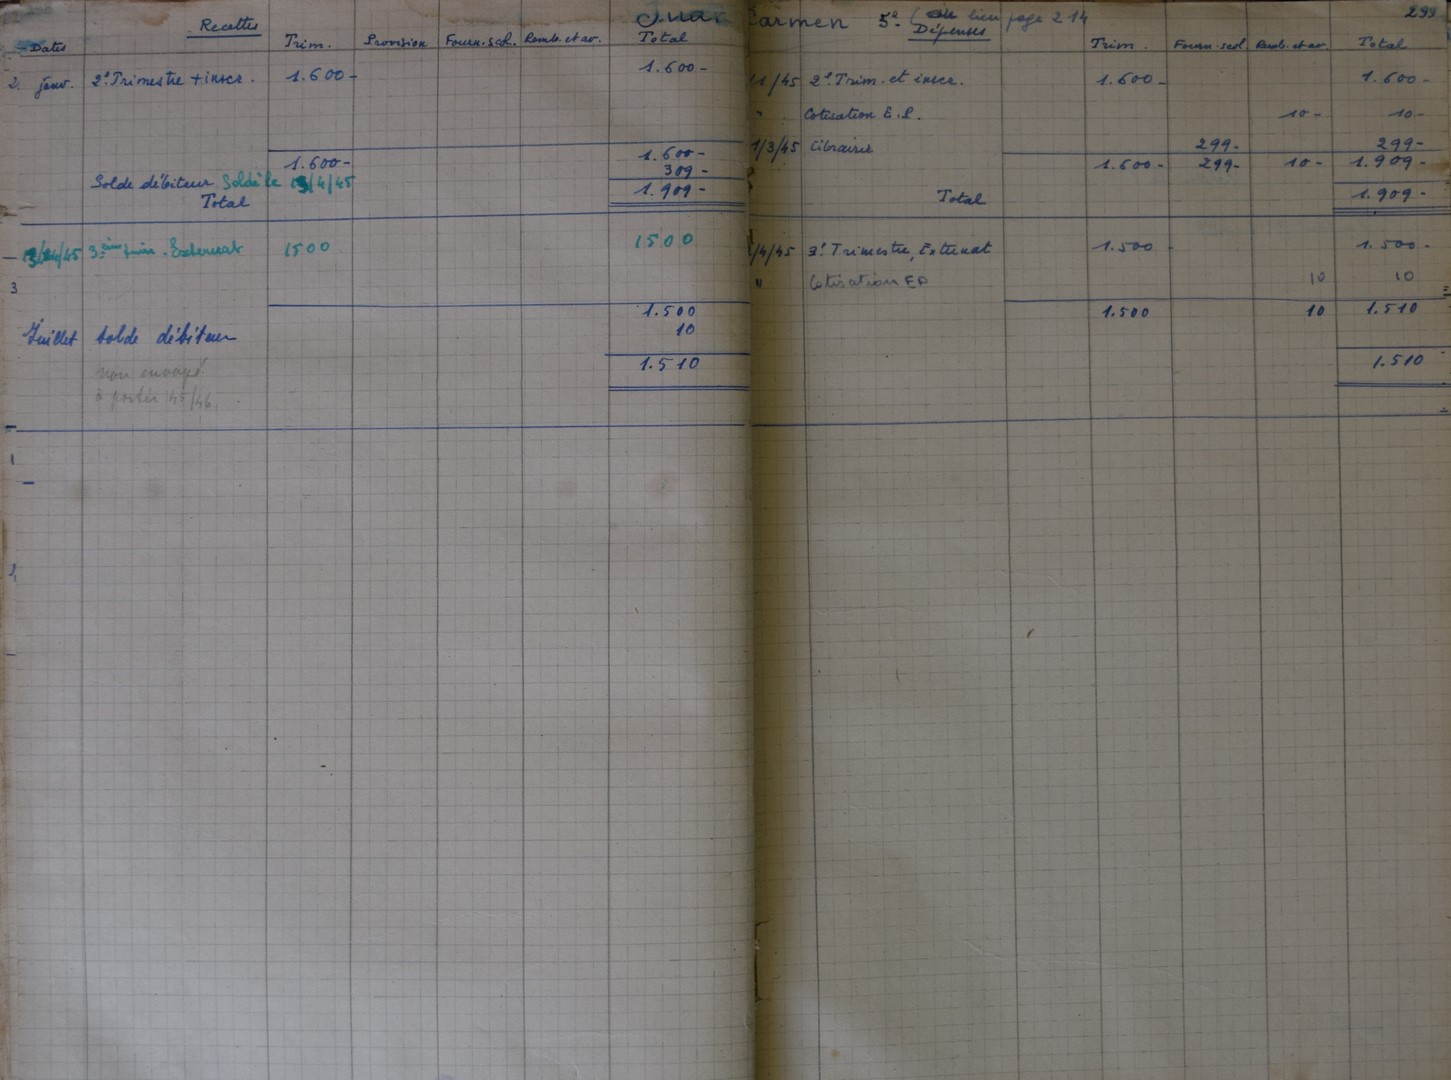 Recettes
Dates Trim. Provision Fourn. scol. Remb. et av. Total
2. janv. 2e Trimestre + inscr. 1.600- 1.600-
1.600- 1.600-
Solde débiteur Soldé le 13/4/45 309-
Total 1.909-
3ème trim. Externat 1500 1500
3
1.500
Juillet solde débiteur 10
non envoyé 1.510
à porter 45/46.
Carmen 5e lieu page 214 299
Dépenses
Trim. Fourn. scol. Remb. et av. Total
1/45 2e Trim. et inscr. 1.600- 1.600-
" Cotisation E.P. 10- 10-
1/3/45 Librairie 299- 299-
1.600- 299- 10- 1.909-
Total 1.909-
/4/45 3e Trimestre, Externat 1.500- 1.500-
" Cotisation EP 10 10
1.500 10 1.510
1.510